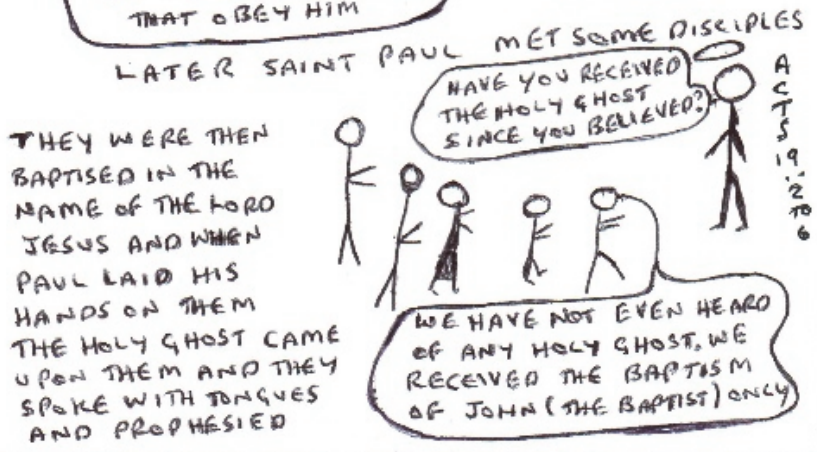 THAT OBEY HIM
LATER SAINT PAUL MET SOME DISCIPLES
HAVE YOU RECEIVED
THE HOLY GHOST
SINCE YOU BELIEVED?
ACTS 19:2 TO 6
THEY WERE THEN
BAPTISED IN THE
NAME OF THE LORD
JESUS AND WHEN
PAUL LAID HIS
HANDS ON THEM
THE HOLY GHOST CAME
UPON THEM AND THEY
SPOKE WITH TONGUES
AND PROPHESIED
WE HAVE NOT EVEN HEARD
OF ANY HOLY GHOST. WE
RECEIVED THE BAPTISM
OF JOHN (THE BAPTIST) ONLY